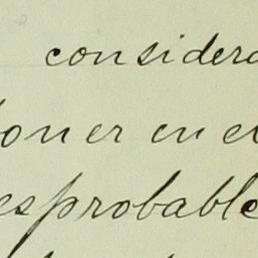 considera
oner en el
esprobable